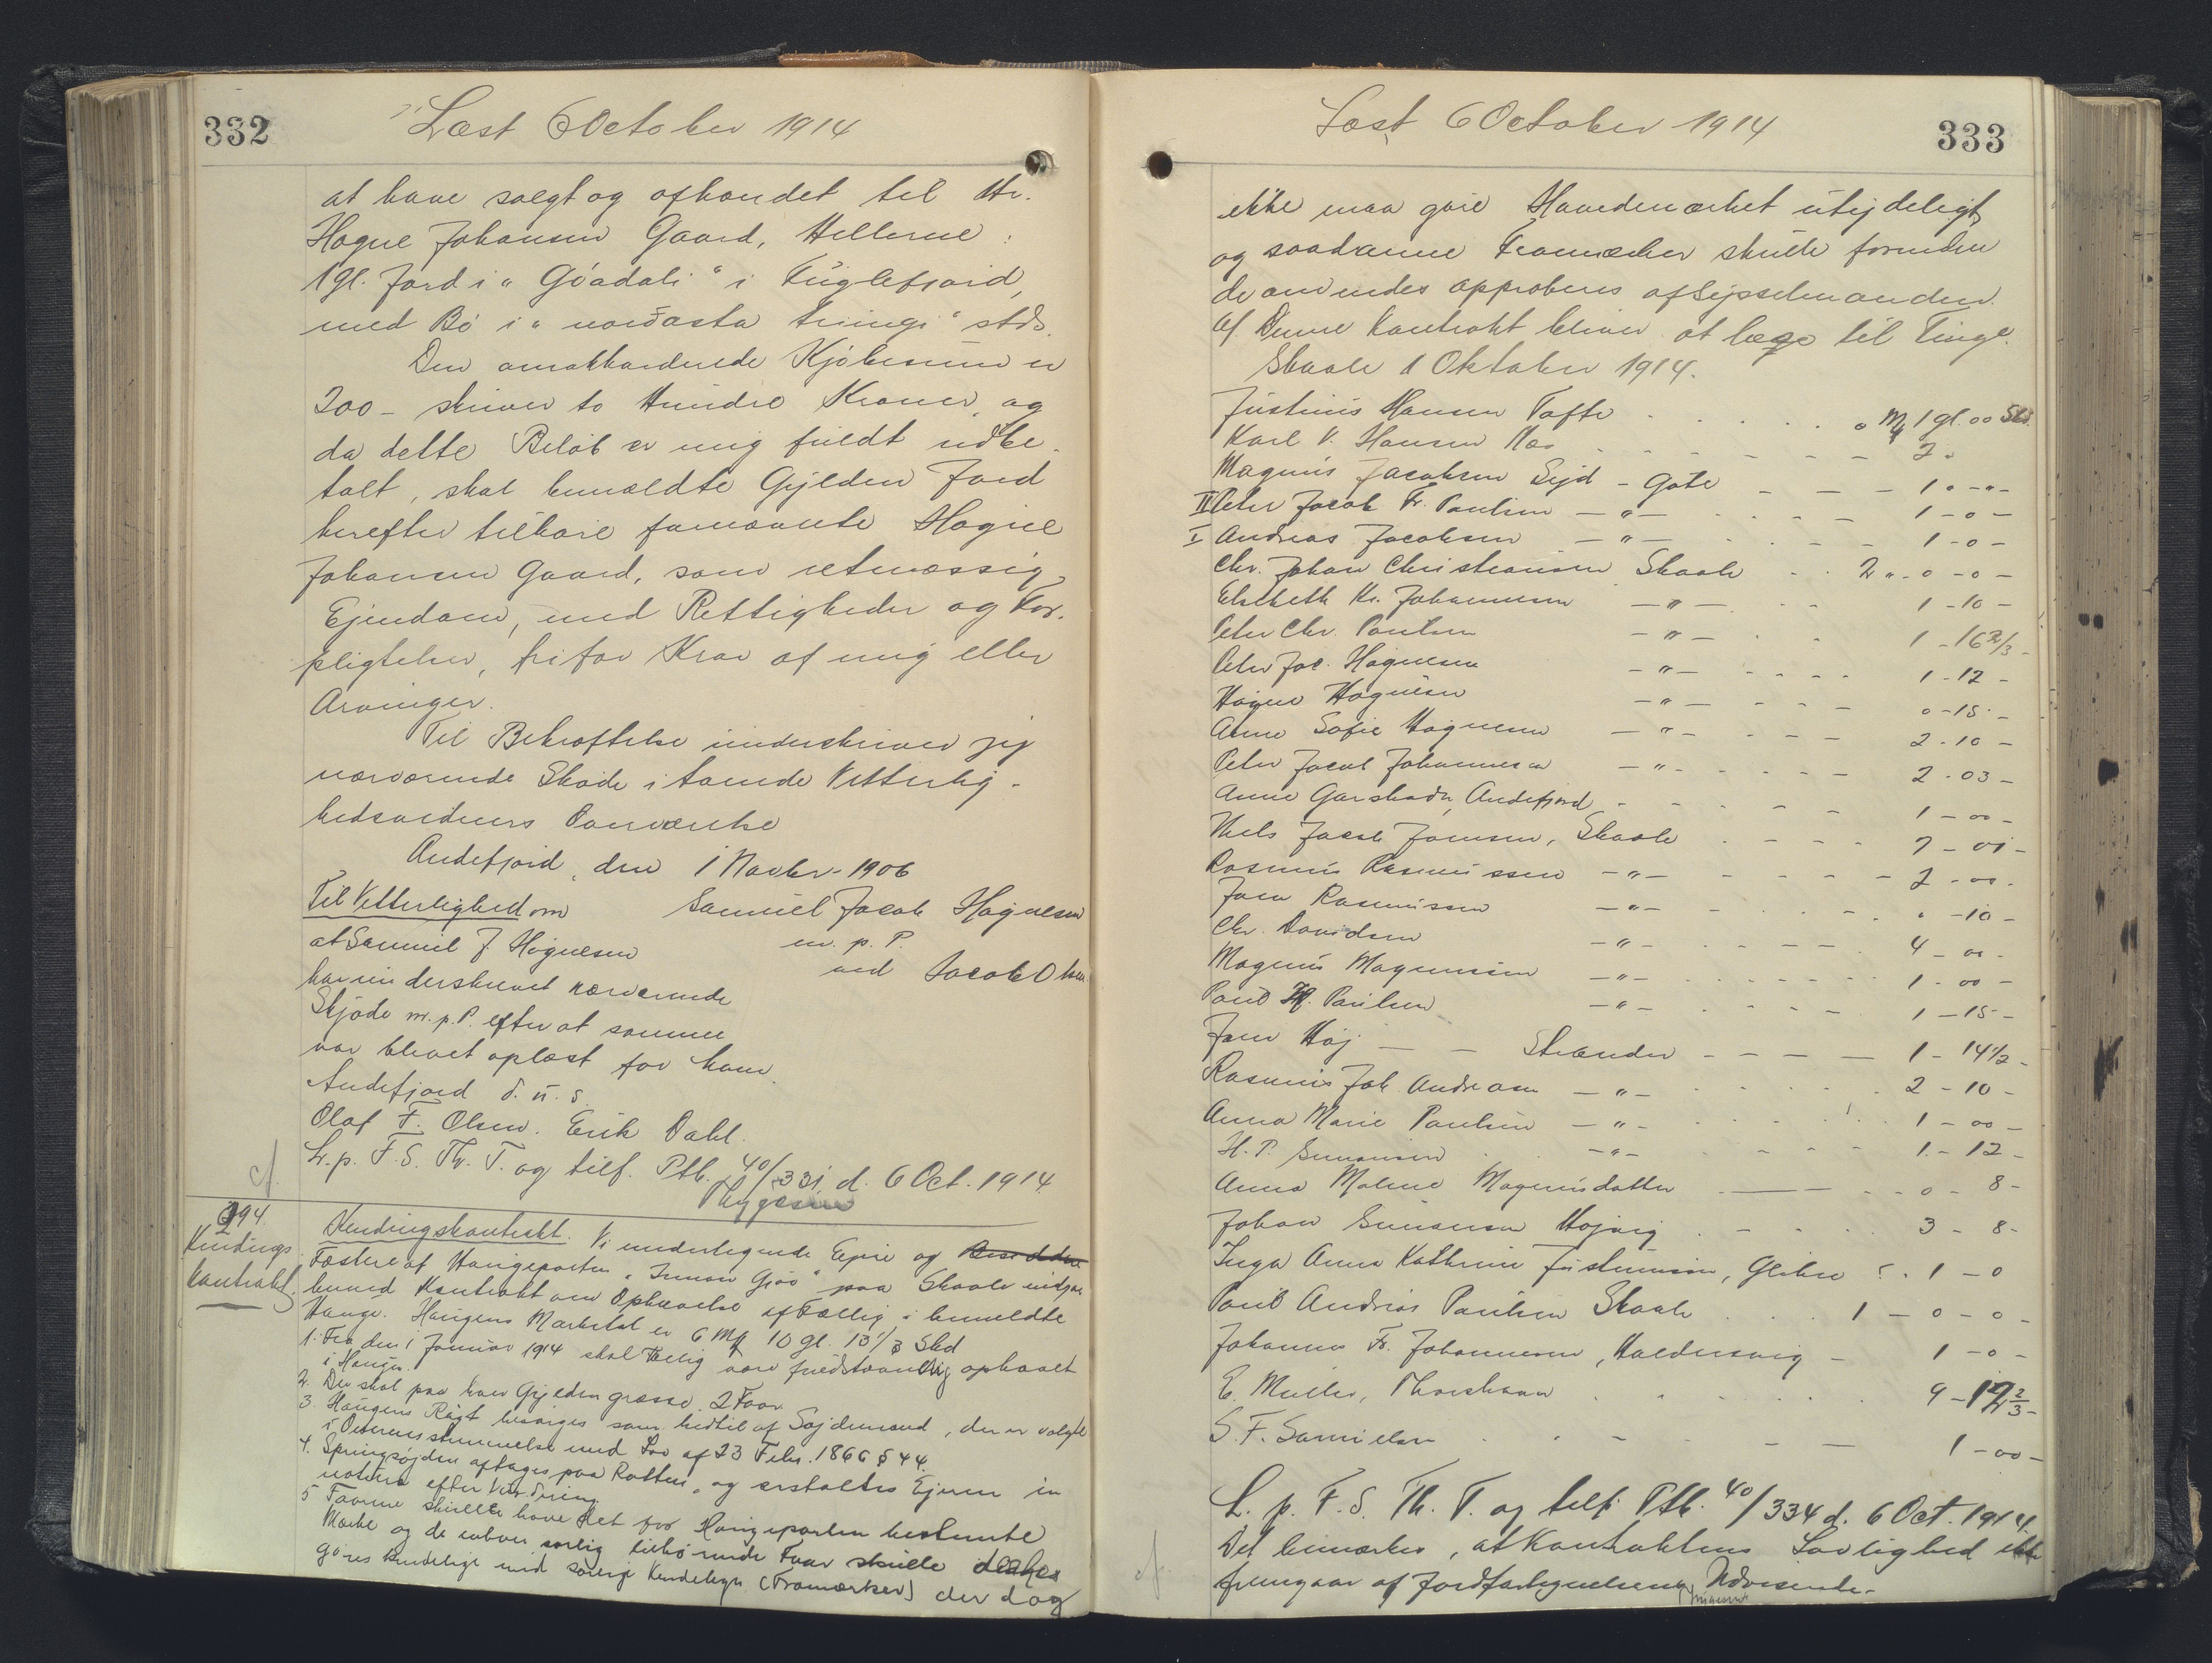 332
Læst 6 October 1914
at have solgt og afhændet til Hr.
Høgne Johansen Gaard, Hellerne:
1 gl. Jord i "Góadali" i Fuglefjord,
med Bø i "norðasta tríngi" stds.
Den omakkorderede Kjøbesum er
200 - skriver to Hundre Kroner, og
da dette Beløb er mig fuldt udbe-
talt, skal bemeldte Gylden Jord
herefter tilhøre fornævnte Høgne
Johansen Gaard, som retmæssig
Ejendom, med Rettigheder og For-
pligtelser, fri for Krav af mig eller
Arvinger.
Til Bekræftelse underskriver jeg
nærværende Skøde i tvende Vitterlig-
hedsvidners Overværelse
Andefjord, den 1 Novbr. 1906
Til Vitterlighed om
Samuel Jacob Høgnesen
at Samuel J. Høgnesen
m. p. P.
har underskrevet nærværende
ved Jacob Olsen
Skjøde m. p. P. efter at samme
var blevet oplæst for ham.
Andefjord d. u. s.
Olaf F. Olsen. Erik Dahl.
L. p. F. S. Th. T. og tilf. Ptb. 40/331 d. 6 Oct. 1914
Thygesen
cf.
194.
Kendings
kontrakt.
Kendingskontrakt. Vi undertegnede Ejere og
Fæstere af Haugeparten "Innan Gjóv" paa Skaale indgaa
herved Kontrakt om Ophævelse af Fællig i bemeldte
Hauge. Haugens Marketal er 6 Mk 10 gl. 13 1/3 Skd
1. Fra den 1 Januar 1914 skal Fællig være fuldstændig ophævet
i Haugen.
2. Der skal paa hver Gylden græsse 2 Faar.
3. Haugens Røgt besørges som hidtil af Søjdemænd, der er valgte
i Overensstemmelse med Lov af 23 Febr. 1866 § 44.
4. Springsøjden aftages paa Retten, og erstattes Ejeren in
natura efter Vurdering.
5 Faarene skulle have det for Haugeparten bestemte
Mærke og de enhver særlig tilhørende Faar skulle
gøres kendelige med særlige Kendetegn (Framærker) der dog
Læst 6 October 1914
333
ikke maa gøre Hovedmærket utydeligt
og saadanne Framærker skulle forinden
de anvendes approberes af Sysselmanden.
cf. Denne Kontrakt bliver at læse til Tinge.
Skaale 1 Oktober 1914.
Justinus Hansen Tofte . . . . 0 Mk 1 gl. 00 Skd.
Karl V. Hansen Næs - - - - - 2 "
Magnus Jacobsen Syd-Gøte - - - 1 " - " -
II Peter Jacob Fr. Poulsen - " - . . . 1 - 0 -
I Andreas Jacobsen - " - . . . 1 - 0 -
Chr. Johan Christiansen Skaale . . 2 " - 0 - 0 -
Elsebeth Kr. Johannesen - " - . . 1 - 10 -
Peter Chr. Poulsen - " - . . 1 - 16 2/3 -
Peter Jac. Høgnesen - " - . . . 1 - 12 -
Høgne Høgnesen - " - . . . 0 - 15 -
Anne Sofie Høgnesen - " - . . . 2 - 10 -
Peter Jacob Johannesen - " - . . . 2 - 03 -
Anne Garskadn, Andefjord - - - - 1 - 00 -
Niels Jacob Joensen, Skaale . . . 7 - 01 -
Rasmus Rasmussen - " - - - - 2 - 00 -
Joen Rasmussen - " - . . . " - 10 -
Chr. Davidsen - " - . . . 4 - 00 -
Magnus Magnussen - " - . . . 1 - 00 -
Poul H. Poulsen - " - . . . 1 - 15 -
Joen Høj - - Strænder - - - - 1 - 14 1/2 -
Rasmus Joh. Andreasen - " - . . . 2 - 10 -
Anna Marie Poulsen - " - . . . 1 - 00 -
H. P. Simonsen - " - . . . 1 - 12 -
Anna Malene Magnusdatter - - - 0 - 8 -
Johan Simonsen Højvig - . . . 3 - 8 -
Inga Anna Kathrine Justinussen, Glibre . 1 - 0
Poul Andrias Poulsen Skaale . . 1 - 0 - 0 -
Johannes Fr. Johannesen, Haldersvig - 1 - 0 -
E. Müller, Thorshavn . . . . 9 - 12 2/3 -
S. F. Samuelsen . - - - - 1 - 00 -
L. p. F. S. Th. T. og tilf. Ptb. 40/334 d. 6 Oct. 1914.
Det bemærkes, at Kontraktens Lovlighed ikke
fremgaar af Jordfortegnelsens Udvisende.
cf.